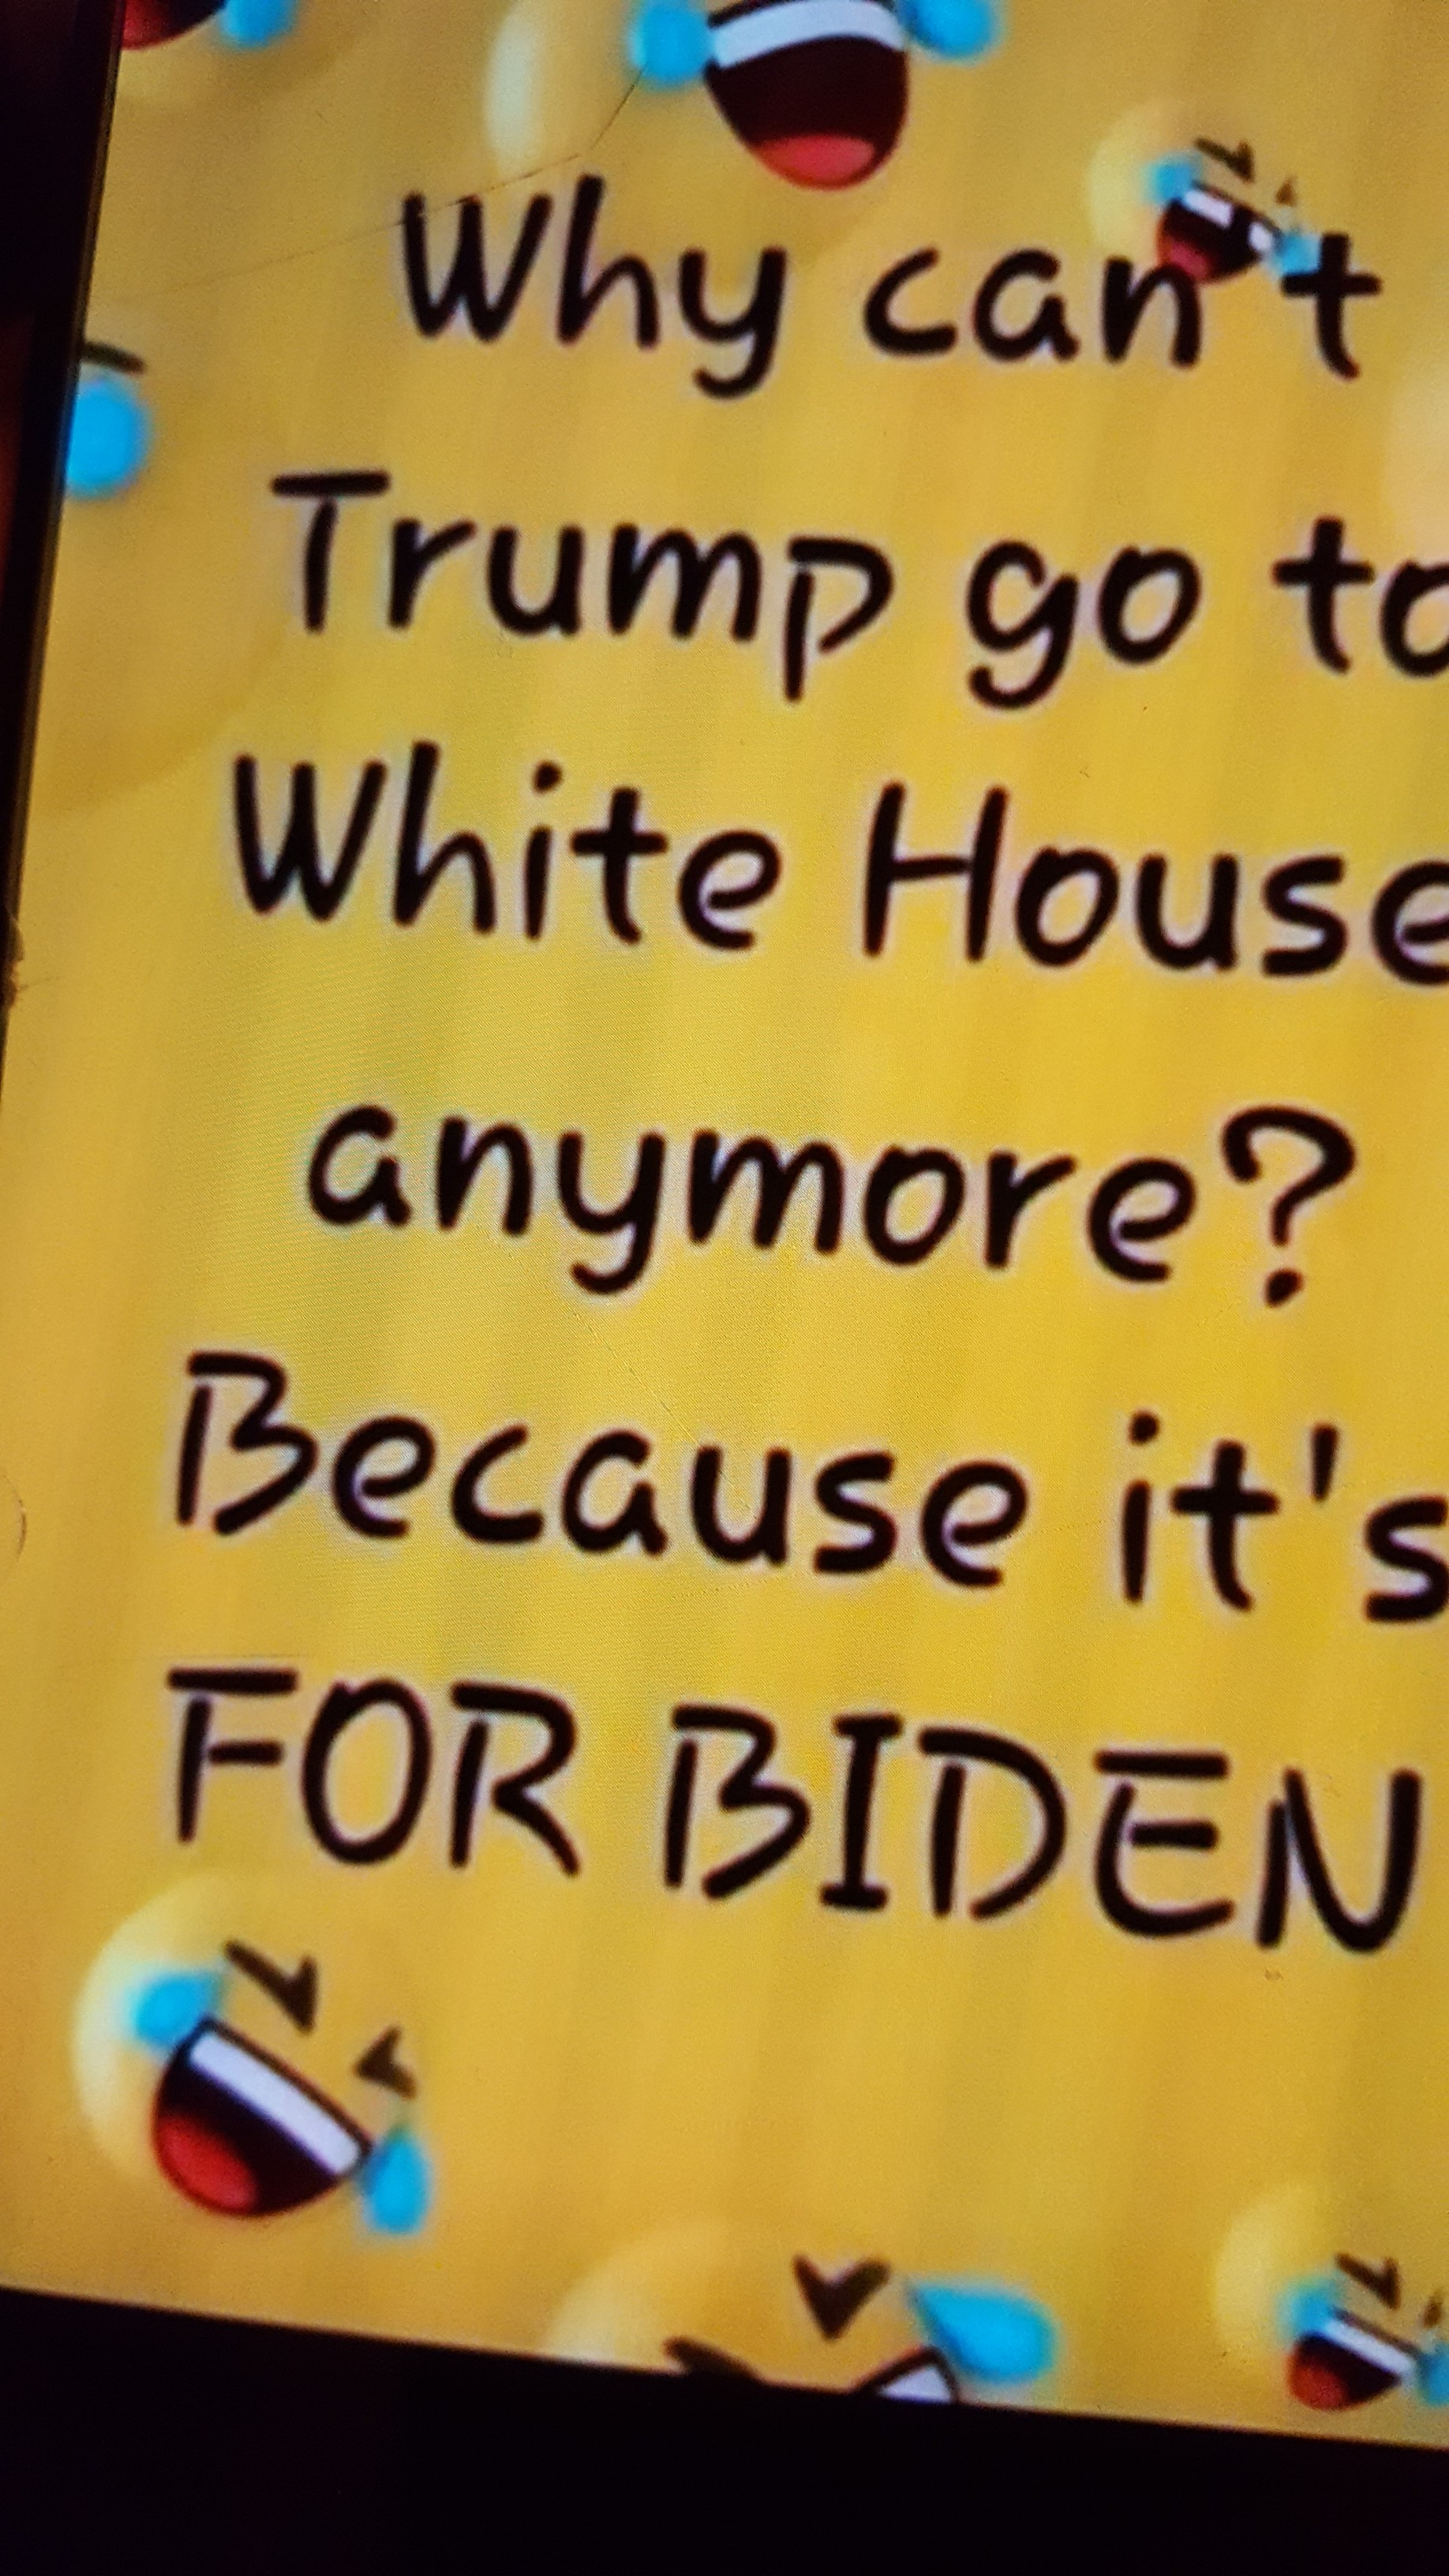 Why can't
Trump go to
White House
anymore?
Because it's
FOR BIDEN